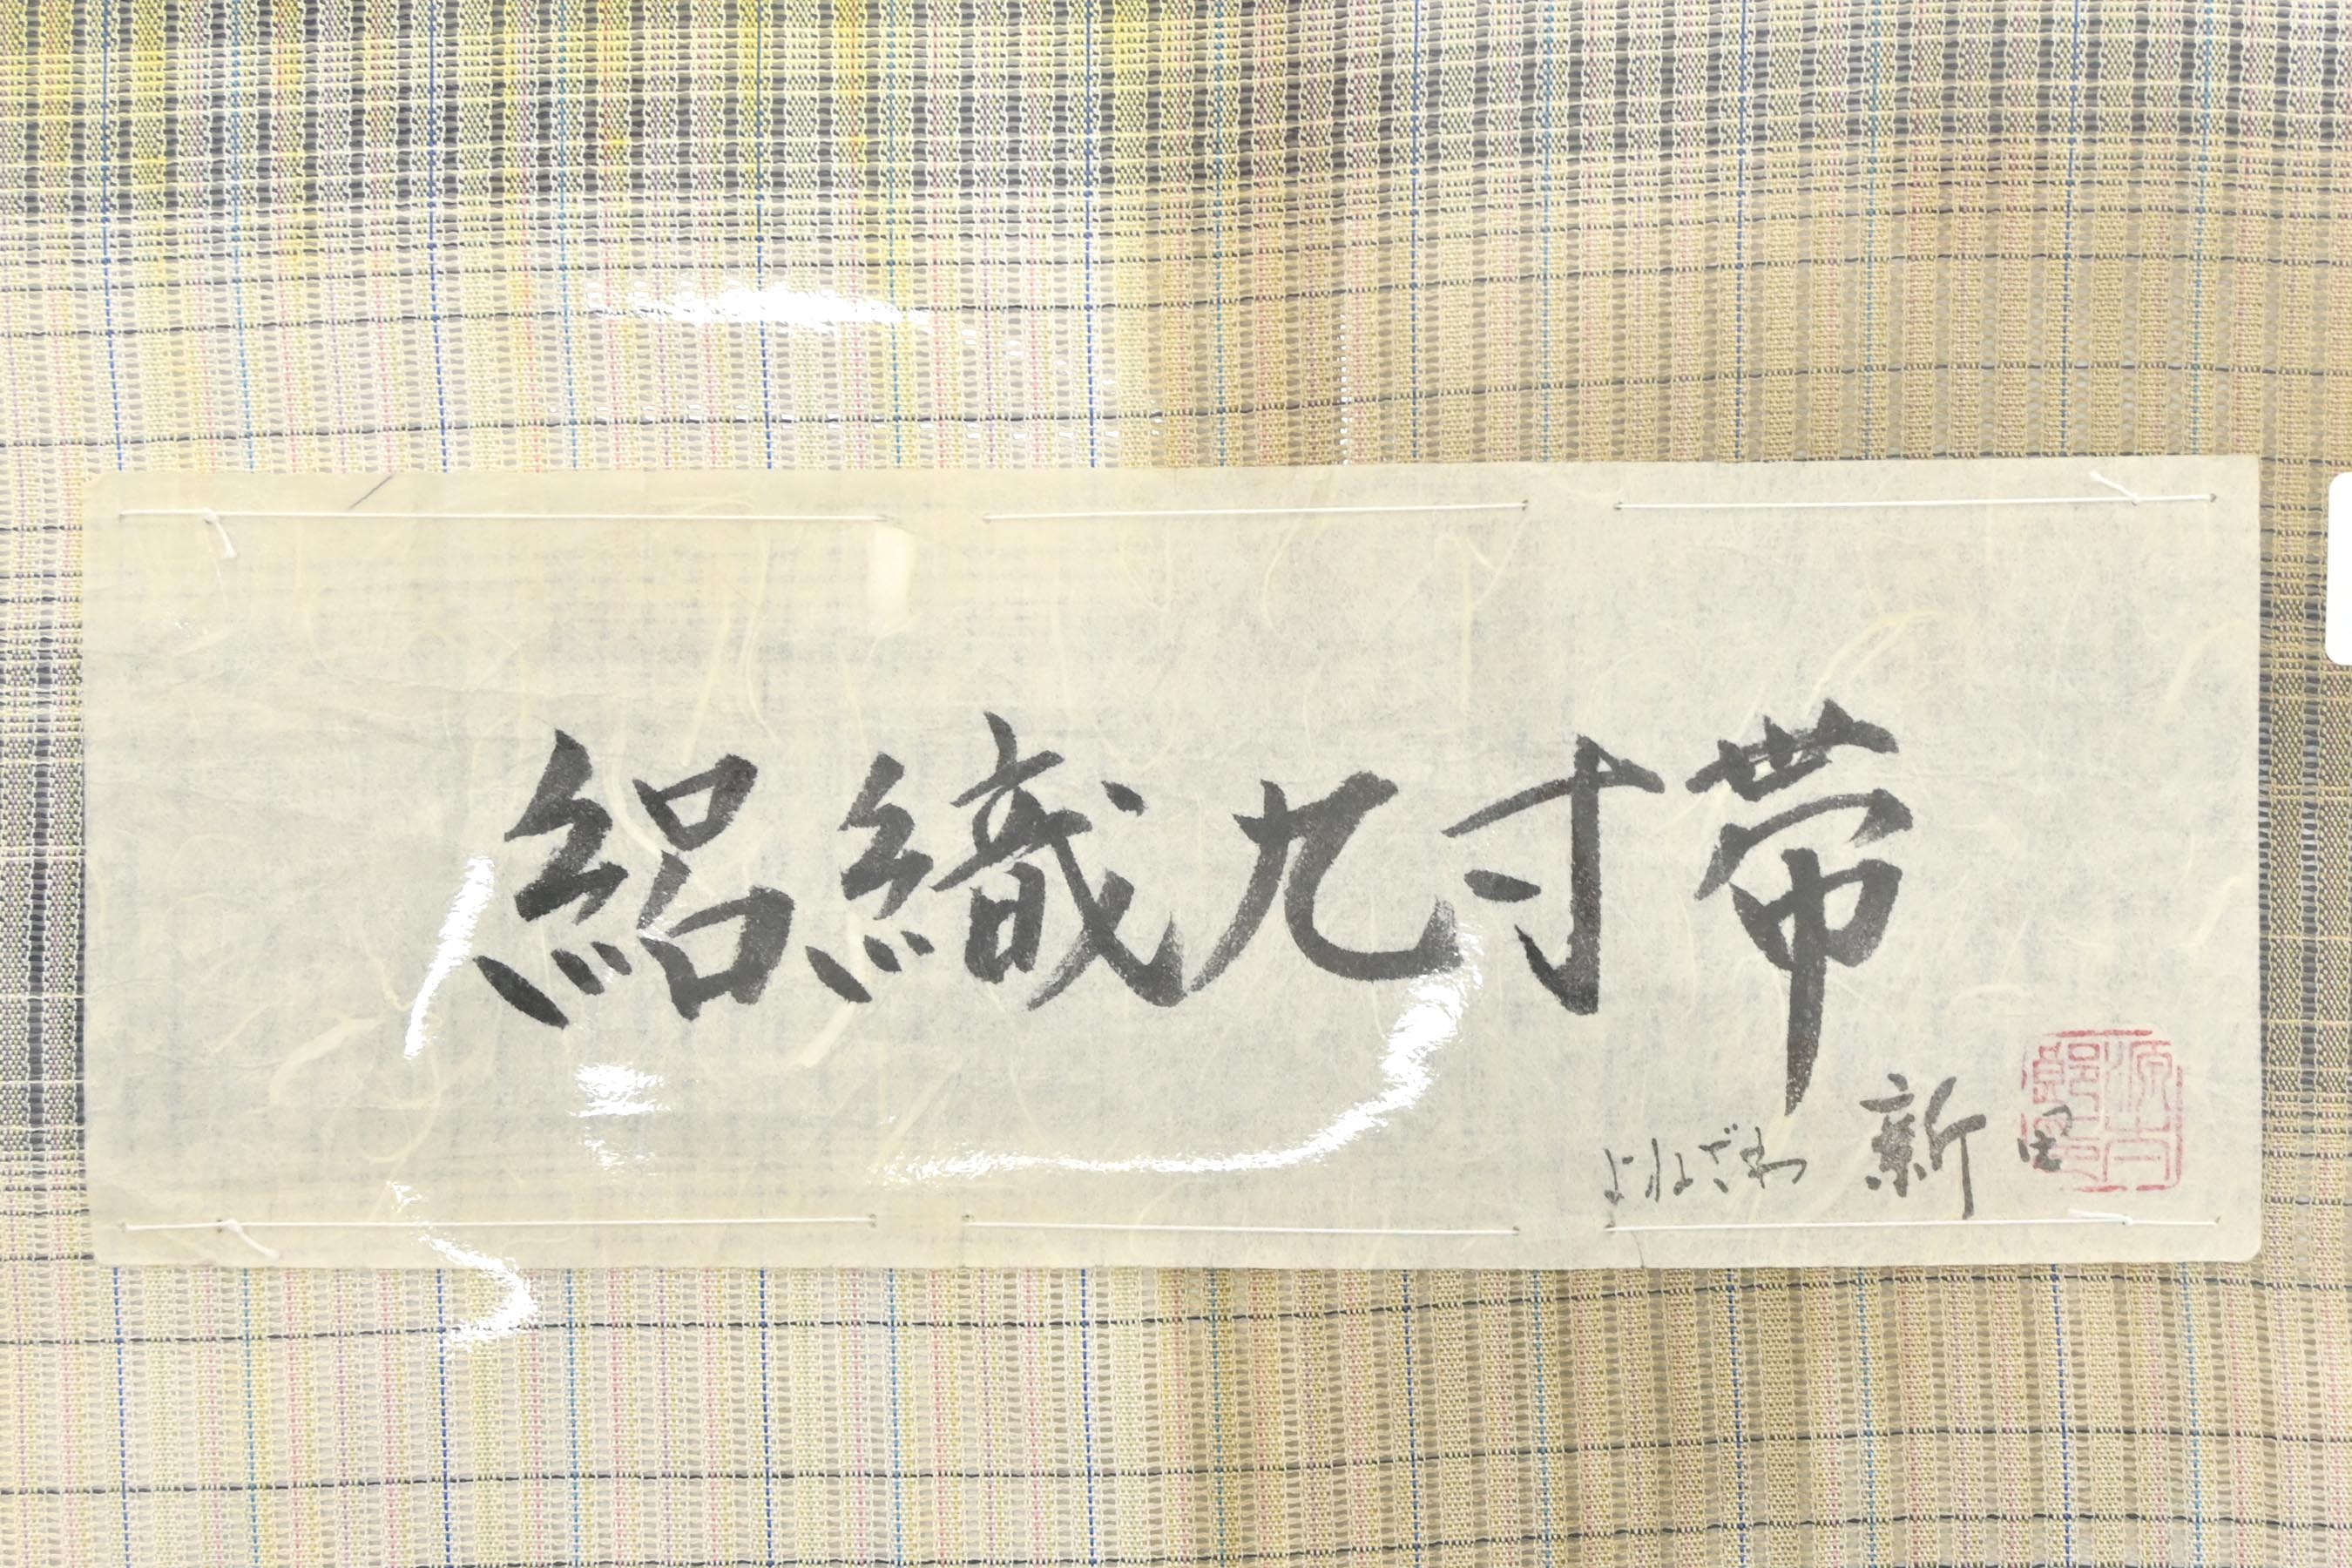 絽織九寸帯
よねざわ 新田